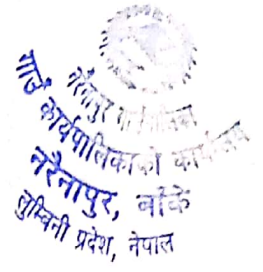 नरैनापुर गाउँपालिका
गाउँ कार्यपालिकाको कार्यालय
नरैनापुर, बाँके
लुम्बिनी प्रदेश, नेपाल